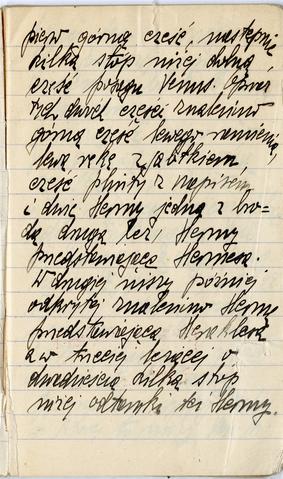 pierw górną część, następnie
kilka stóp niżej dolną
część posągu Venus. Oprócz
tych dwóch części znaleziono
górną część lewego ramienia,
lewą rękę z jabłkiem,
część plinty z napisem
i dwie Hermy jedną z bro-
dą drugą bez, Hermy
przedstawiającą Hermesa.
W drugiej niszy później
odkrytej znaleziono Hermę
przedstawiającą Heraklesa
a w trzeciej leżącej o
dwadzieścia kilka stóp
niżej odłamki tej Hermy.